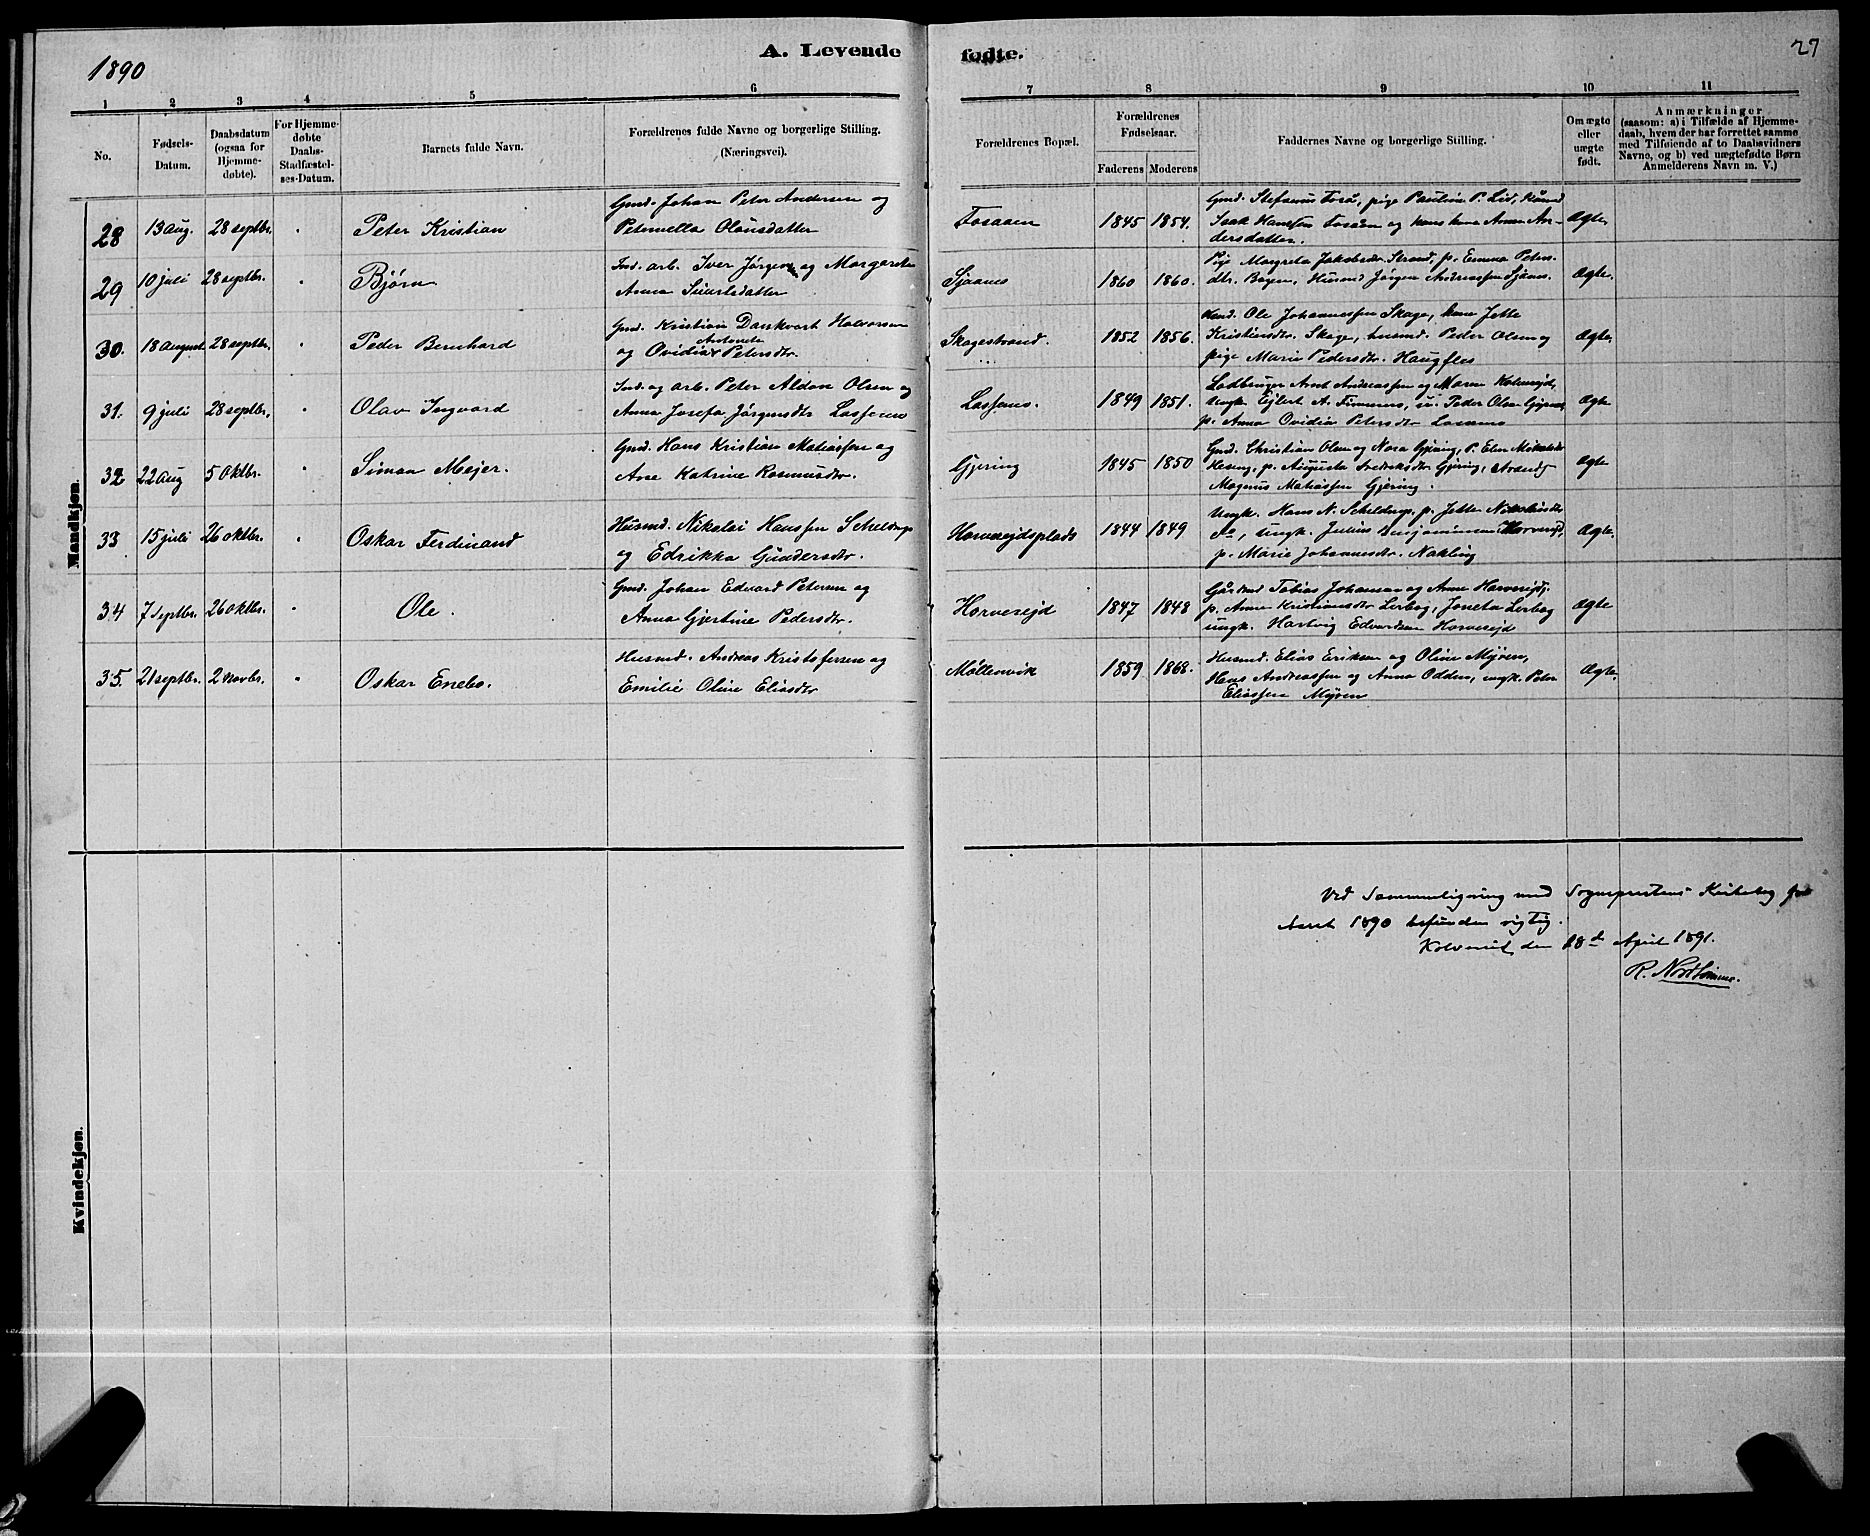 1890
A. Levende
fødte.
27
1 2 3 4 5 6 7 8 9 10 11
No.
Fødsels-Datum.
Daabsdatum (ogsaa for Hjemme-døbte).
For Hjemme-døbte Daabs-Stadfæstel-ses-Datum.
Barnets fulde Navn.
Forældrenes fulde Navne og borgerlige Stilling. (Næringsvei).
Forældrenes Bopæl.
Forældrenes Fødselsaar.
Faderens Moderens
Faddernes Navne og borgerlige Stilling.
Om ægte eller uægte født.
Anmærkninger
(saasom: a) i Tilfælde af Hjemme-
daab, hvem der har forrettet samme
med Tilføiende af to Daabsvidners
Navne, og b) ved uægtefødte Børn
Anmelderens Navn m. V.)
Mandkjøn.
28 13 aug. 28 septbr. " Peter Kristian
Gmd. Johan Peter Andersen og
Peternella Olausdatter
Fosaaen 1845 1854.
Gmd. Stefanus Fosø, pige Paulina P. Lid, Husmd
Isak Hansen Fosaaen og kone Anna An-
dersdatter.
Ægte
29 10 juli 28 septbr. " Bjørn
Ind. arb. Iver Jørgens. og Margareta
Anna
Sjaanes 1860 1860.
Pige Margreta Jakobsdr Strand, p. Emma Peters-
dtr. Bogen, Husmd Jørgen Andreassen Sjaanes.
Ægte.
30. 18 august 28 septbr. " Peder Bernhard
Gmd. Kristian Danckvart Halvorsen
og Ovidia Antoneta Petersdr.
Skagestrand. 1852 1856.
Gmd. Ole Johannessen Skage, kone Jette
Kristiansdr. Skage, husmd. Peder Olsen og
pige Marie Pedersdr. Haugfles
Ægte.
31. 9 juli 28 septbr. " Olav Ingvard
Ind. og arb. Peter Aldon Olsen og
Anna Josefa Jørgensdr Lassemo
Lassemo. 1849 1851.
Arnt Andreassen og Maren Kolvereid,
Ungk. Ejlert A. Finnenes, u. Peder Olsen
p. Anna Ovidia Petersdr Lassemo
Ægte
32 22 aug 5 oktbr. " Simon Mejer.
Gmd. Hans Kristian Matiassen og
Ane Katrine Rasmusdr.
Gjøring 1845 1850
Gmd. Christian Olsen og Nora Gjøring, P. Elen
p. Augusta Fredriksdr Gjøring,
Magnus Matiassen Gjøring.
Ægte
33 15 juli 26 oktbr. " Oskar Ferdinand
Husmd. Nikolai Hanssen Schelderup
og Edrikka Gundersdr.
Horvereidsplads 1844 1849
Ungk. Hans N. Schelderup, p. Jette Nikolaisdr
do, ungk. Julius Benjaminsen Horvereid,
p. Marie Johannesdr. Nakling
Ægte.
34 7 septbr. 26 oktbr. " Ole.
Gmd. Johan Edvard Petersen og
Anna Gjertine Pedersdr.
Horvereid 1847 1848
Gårdmd Tobias Johansen og Ane Horvereid,
p. Anne Kristiansdr Lerbog, Joneta Lerbog
ungk. Hartvig Edvardsen Horvereid
Ægte
35. 21 septbr. 2 novbr. " Oskar Enebo.
Husmd. Andreas Kristofersen og
Emilie Oline Eliasdr
Møllenvik 1859 1868.
Husmd. Elias Eriksen og Oline Myren,
Hans Andreassen og Anna Odden, ungk. Peter
Eliassen Myren
Ægte.
Kvindekjøn.
Ved Sammenligning med Sogneprestens Kirkebog for
Aaret 1890 befunden rigtig.
Kolvereid den 18de April 1891.
R.